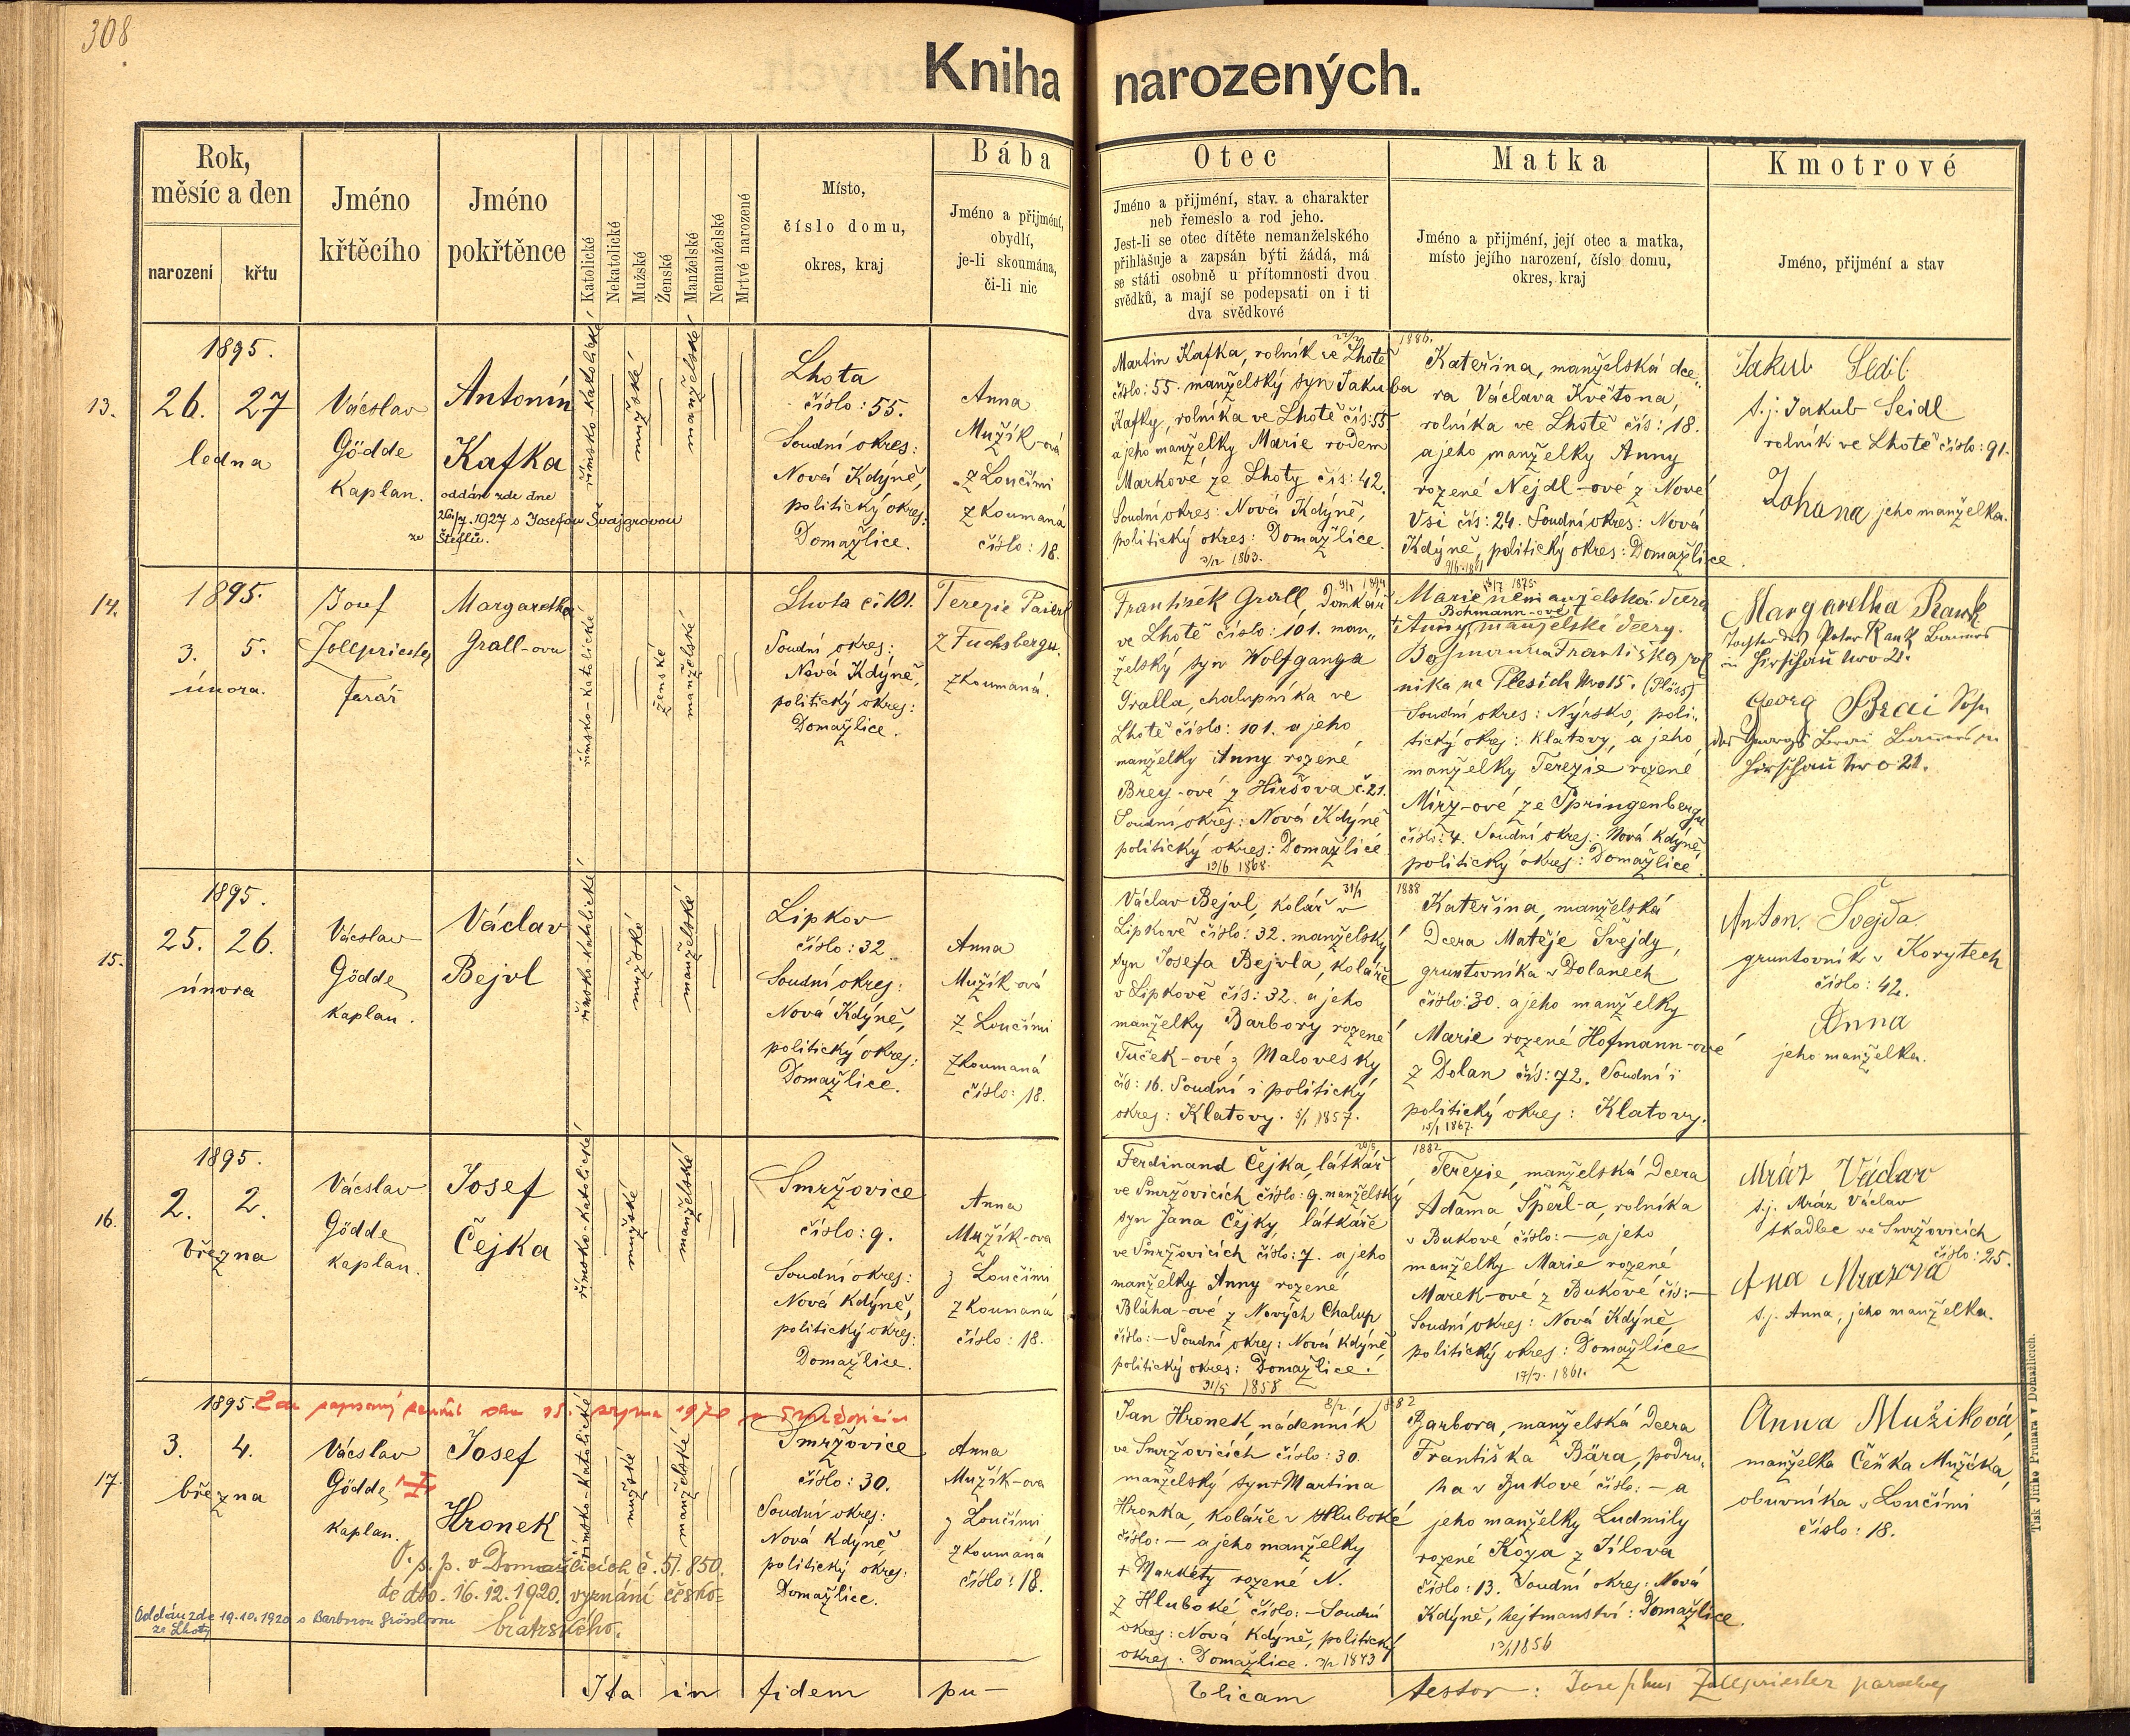 308
Kniha narozených.
Rok,
měsíc a den
narození
křtu
Jméno
křtěcího
Jméno
pokřtěnce
Katolické
Nekatolické
Mužské
Ženské
Manželské
Nemanželské
Mrtvě narozené
Místo,
číslo domu,
okres, kraj
Bába
Jméno a přijmění,
obydlí,
je-li skoumána,
či-li nic
Otec
Jméno a přijmění, stav. a charakter
neb řemeslo a rod jeho.
Jest-li se otec dítěte nemanželského
přihlašuje a zapsán býti žádá, má
se státi osobně u přítomnosti dvou
svědků, a mají se podepsati on i ti
dva svědkové
Matka
Jméno a přijmění, její otec a matka,
místo jejího narození, číslo domu,
okres, kraj
Kmotrové
Jméno, přijmění a stav
13.
1895.
26. 27
ledna
Vácslav
Gödde
Kaplan.
Antonín
Kafka
oddán zde dne
1927 s Josefou Švajgrovou
ze Šteflů.
římsko-katolické
mužské
manželské
Lhota
číslo: 55.
Soudní okres:
Nová Kdýně,
politický okres:
Domažlice.
Anna
Mužík-ová
z Loučimi
zkoumaná
číslo: 18.
Martin Kafka, rolník ve Lhotě
číslo: 55. manželský syn Jakuba
Kafky, rolníka ve Lhotě čís: 55.
a jeho manželky Marie rodem
Markové ze Lhoty čís: 42.
Soudní okres: Nová Kdýně,
politický okres: Domažlice.
1863.
1886.
Kateřina, manželská dce„
ra Václava Květona,
rolníka ve Lhotě čís: 18.
a jeho manželky Anny
rozené Nejdl-ové z Nové
Vsi čís: 24. Soudní okres: Nová
Kdýně, politický okres: Domažlice.
Jakub Sedl
t.j. Jakub Seidl
rolník ve Lhotě číslo: 91.
Johana jeho manželka.
14.
1895.
3. 5.
února.
Josef
Zollpriester
farář
Margaretha
Grall-ova
římsko-katolické
ženské
manželské
Lhota č. 101.
Soudní okres:
Nová Kdýně,
politický okres:
Domažlice.
Terezie Paierl
z Fuchsbergu.
zkoumaná.
František Grall, Domkář
ve Lhotě číslo: 101. man„
želský syn Wolfganga
Gralla, chalupníka ve
Lhotě číslo: 101. a jeho
manželky Anny rozené
Brey-ové z Hiršova č. 21.
Soudní okres: Nová Kdýně
politický okres: Domažlice
13/6 1868.
Marie nemanželská dcera
Bohmann-ové
Anny, manželské dcery
Bohmanna Františka rol
nika na Plesích Nro 15. (Plöss)
Soudní okres: Nýrsko, poli„
tický okres: Klatovy, a jeho
manželky Terezie rozené
Mirz-ové ze Springenbergu
číslo: 4. Soudní okres: Nová Kdýně,
politický okres: Domažlice.
Margaretha Rank
Tochter des Peter Rank
in Hirschau Nro 21.
Georg Brai Sohn
des Georg
Hirschau Nro 21.
15.
1895.
25. 26.
února
Vácslav
Gödde
Kaplan.
Václav
Bejvl
římsko-katolické
mužské
manželské
Lipkov
číslo: 32.
Soudní okres:
Nová Kdýně,
politický okres:
Domažlice.
Anna
Mužík-ová
z Loučimi
zkoumaná
číslo: 18.
Václav Bejvl, kolář v
Lipkově číslo: 32. manželský
syn Josefa Bejvla, koláře
v Lipkově čís: 32. a jeho
manželky Barbory rozené
Tuček-ové z Malovesky
čís: 16. Soudní i politický
okres: Klatovy. 5/1 1857.
31/1 1888
Kateřina, manželská
Dcera Matěje Švejdy,
gruntovníka v Dolanech
číslo: 30. a jeho manželky
Marie rozené Hofmann-ové
z Dolan čís: 72. Soudní i
politický okres: Klatovy.
15/1 1867.
Anton. Švejda
gruntovník v Korytech
číslo: 42.
Anna
jeho manželka.
16.
1895.
2. 2.
března
Vácslav
Gödde
Kaplan.
Josef
Čejka
římsko-katolické
mužské
manželské
Smržovice
číslo: 9.
Soudní okres:
Nová Kdýně,
politický okres:
Domažlice.
Anna
Mužík-ova
z Loučimi
zkoumaná
číslo: 18.
Ferdinand Čejka, látkář
ve Smržovicích číslo: 9. manželský
syn Jana Čejky, látkáře
ve Smržovicích číslo: 7. a jeho
manželky Anny rozené
Bláha-ové z Nových Chalup
číslo: — Soudní okres: Nová Kdýně
politický okres: Domažlice.
31/5 1858
1882
Terezie, manželská Dcera
Adama Šperl-a, rolníka
v Bukové číslo: — a jeho
manželky Marie rozené
Marek-ové z Bukové čís: —
Soudní okres: Nová Kdýně,
politický okres: Domažlice
17/3. 1861.
Mráz Václav
t.j. Mráz Václav
tkadlec ve Smržovicích
číslo: 25.
Ana Mrazova
t.j. Anna, jeho manželka.
17.
1895. Zde zapsaný zemřel dne 15. srpna 1970 v Smržovicích
3. 4.
března
Vácslav
Gödde
Kaplan.
Josef
Hronek
římsko-katolické
mužské
manželské
O. s. p. v Domažlicích č. 51.850.
de dto. 16.12.1920. vyznání česko=
bratrského.
Oddán zde 19.10.1920 s Barborou Grösslovou
ze Lhoty
Smržovice
číslo: 30.
Soudní okres:
Nová Kdýně
politický okres:
Domažlice.
Anna
Mužík-ova
z Loučimi
zkoumaná
číslo: 18.
Jan Hronek, nádenník
ve Smržovicích číslo: 30.
manželský syn Martina
Hronka, koláře v Hluboké
číslo: — a jeho manželky
+ Markéty rozené N.
z Hluboké číslo: — Soudní
okres: Nová Kdýně, politický
okres: Domažlice. 1843
8/2 1882
Barbora, manželská Dcera
Františka Bära, podru„
ha v Bukové číslo: — a
jeho manželky Ludmily
rozené Koza z Jílova
číslo: 13. Soudní okres: Nová
Kdýně, hejtmanství: Domažlice.
1856
Anna Mužiková,
manželka Čeňka Mužíka,
obuvníka v Loučimi
číslo: 18.
Ita in fidem pu—
blicam testor: Josephus Zollpriester parochus
Tisk Jiřího Prunara v Domažlicích.